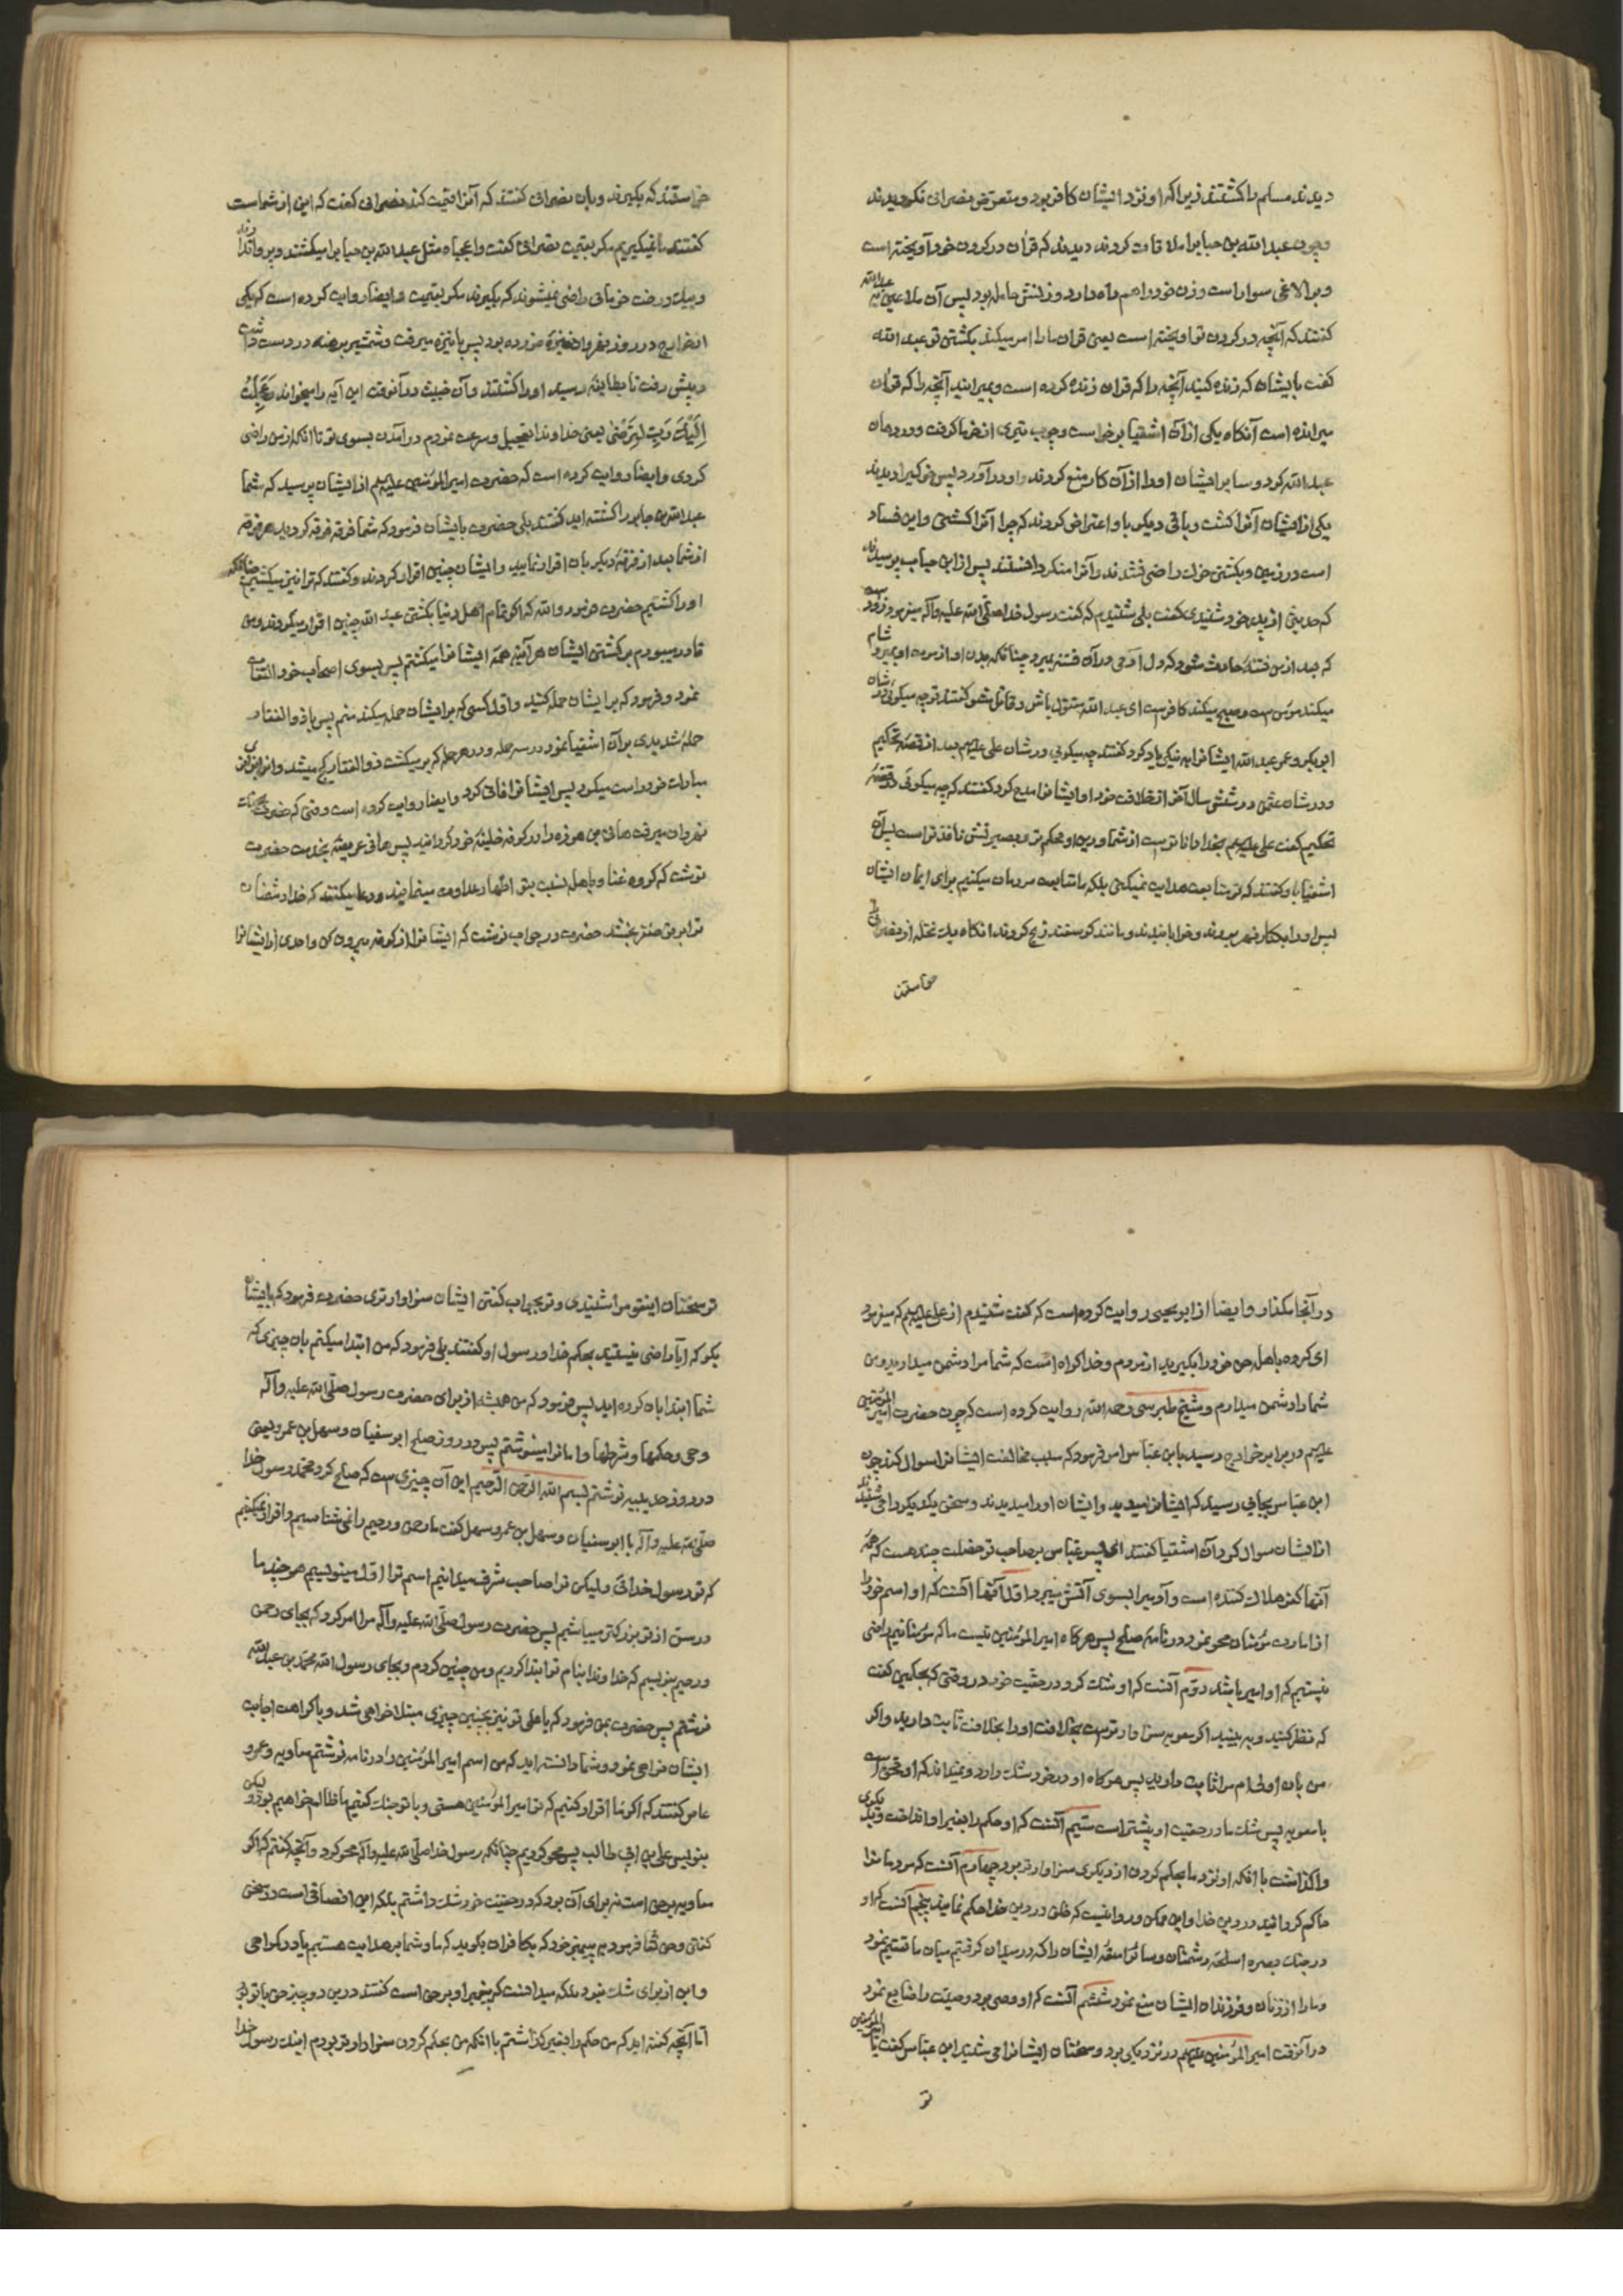 دیدند مسلم را کشتند زیرا که او نزد ایشان کافر بود و متعرض نصرانی نکردیدند
و چون عبد الله بن حباب را ملاقات کردند دیدند که قرآن در کردن خود آویخته است
و بر الاغی سوار است و زن خود را همراه دارد و زنش حامله بود پس آن ملاعین بعبدالله
کفتند که آنچه در کردن تو آویخته است یعنی قرآن ما را امر میکند بکشتن تو عبد الله
کفت بایشان که زنده کنید آنچه را که قرآن زنده کرده است و بمیرانید آنچه را که قرآن
میرانده است آنکاه یکی از آن اشقیا برخواست و چوب تیری از خرما کرفت و در دهان
عبد الله کرد و سایر ایشان او را از آن کار منع کردند و او در آورد پس خوکی را دیدند
یکی از ایشان آنرا کشت و باقی دیکر با او اعتراض کردند که چرا آنرا کشتی و این فساد
است در زمین و بکشتن خوک راضی نشدند و آنرا منکر دانستند پس از ابن حباب پرسیدند
که حدیثی از پدر خود شنیدی کفت بلی شنیدم که کفت رسول خدا صلی الله علیه وآله میفرمود زود است
که بعد از من فتنه حادث شود که دل آدمی در آن فتنه بمیرد چنانکه بدن او از موت او بمیرد و شام
میکند مؤمن است و صبح میکند کافر است ای عبد الله مقتول باش و قاتل مشو کفتند تو چه میکوئی در شان
ابو بکر و عمر عبد الله ایشانرا به نیکی یاد کرد کفتند چه میکویی در شان علی علیهم بعد از قصه تحکیم
و در شان عثمن در شش سال آخر از خلافت خود او ایشانرا مدح کرد کفتند که چه میکوئی در قصه
تحکیم کفت علی علیهم بخدا داناتر است از شما و دین او محکم تر و بصیرتش نافذتر است پس آن
اشقیا باو کفتند که تو متابعت هدایت نمیکنی بلکه متابعت مردمان میکنیم برای ایمان ایشان
پس او را بکنار نهر بردند و خوابانیدند و مانند کوسفند ذبح کردند آنکاه یک نخله از نصرانی
خواستند
خواستند که بکیرند و بان نصرانی کفتند که آنرا قیمت کند نصرانی کفت که این از شماست
کفتند ما نمیکیریم مکر بقیمت نصرانی کفت واعجباه مثل عبد الله بن حباب را میکشند و پروا ندارند
و بیک درخت خرمائی راضی نمیشوند که بکیرند مکر بقیمت و ایضا روایت کرده است که یکی
از خوارج در روز نهروان نیزه خورده بود پس با نیزه میرفت و شمشیر برهنه در دست داشت
و پیش رفت تا بطاینه رسید او را کشتند و آن خبیث در آنوقت این آیه را میخواند وَعَجِلْتُ
اِلَیْكَ رَبِّ لِتَرْضٰی یعنی خداوندا تعجیل و سرعت نمودم در آمدن بسوی تو تا آنکه از من راضی
کردی و ایضا روایت کرده است که حضرت امیر المؤمنین علیهم از ایشان پرسید که شما
عبد الله بن جابر را کشته اید کفتند بلی حضرت بایشان فرمود که شما فرقه فرقه کردید هر فرقه
از شما بعد از فرقه دیکر بان اقرار نمایید و ایشان چنین اقرار کردند و کفتند که ترا نیز میکشیم چنانکه
او را کشتیم حضرت فرمود والله که اکر تمام اهل دنیا بکشتن عبد الله چنین اقرار میکردند و من
قادر میبودم بر کشتن ایشان هر آینه همه ایشانرا میکشتم پس بسوی اصحاب خود التفات
نمود و فرمود که بر ایشان حمله کنید و اول کسی که بر ایشان حمله میکند منم پس با ذو الفقار
حمله شدیدی بر آن اشقیا نمود در سه حمله و در هر حمله که بر میکشت ذو الفقار کج میشد و از زانوی
مبارک خود راست میکرد پس ایشانرا فانی کرد و ایضا روایت کرده است وقتی که حضرت بجنک
نهروان میرفت هانی بن هوذه را در کوفه خلیفه خود کردانید پس هانی عریضه بخدمت حضرت
نوشت که کروه غنا و باهله نسبت بتو اظهار عداوت مینمایند و دعا میکنند که خدا دشمنان
ترا بر تو ظفر بخشد حضرت در جواب نوشت که ایشانرا از کوفه بیرون کن و احدی از ایشانرا
در آنجا مکذار و ایضا از ابو یحیی روایت کرده است که کفت شنیدم از علی علیهم که میفرمود
ای کروه باهله حق خود را بکیرید از مردم و خدا کواه است که شما مرا دشمن میدارید و من
شما را دشمن میدارم و شیخ طبرسی رحمه الله روایت کرده است که چون حضرت امیر المؤمنین
علیهم در برابر خوارج رسید بابن عباس امر فرمود که سبب مخالفت ایشانرا سوال کند چون
ابن عباس بجایی رسید که ایشانرا میدید و ایشان او را میدیدند و سخن یکدیکر را می شنیدند
از ایشان سوال کرد آن اشقیا کفتند ای پسر عباس بر صاحب تو خصلت چند هست که همه
آنها کفر هلاک کننده است و آدمی را بسوی آتش میبرد اول آنها آنست که او اسم خود را
از امارت مؤمنان محو نمود در نامه صلح پس هر کاه امیر المؤمنین نیست ما که مؤمنانیم راضی
نیستیم که او امیر ما باشد دویم آنست که او شک کرد در حقیت خود در وقتی که بحکمین کفت
که نظر کنید و به بینید اکر معویه سزاوارتر است بخلافت او را بخلافت ثابت دارید و اکر
من بان اولی ام مرا ثابت دارید پس هر کاه او در خود شک دارد و نمیداند که او محق است
یا معویه پس شک ما در حقیت او بیشتر است سیم آنست که او حکم را بغیر او انداخت و بدیکری
واکذاشت با آنکه او نزد ما بحکم کردن از دیکری سزاوارتر بود چهارم آنست که مردمانرا
حاکم کردانید در دین خدا و این ممکن و روا نیست که خلق در دین خدا حکم نمایند پنجم آنست که او
در جنک بصره اسلحه دشمنان و سائر امتعه ایشان را که در میدان کرفتیم میان ما قسمت نمود
و ما را از زنان و فرزندان ایشان منع نمود ششم آنست که او وصی بود وصیت را ضایع نمود
در آنوقت امیر المؤمنین علیهم در نزدیکی بود و سخنان ایشانرا می شنید ابن عباس کفت یا امیر المؤمنین
تو
تو سخنان این قوم را شنیدی و تو بجواب کفتن ایشان سزاوارتری حضرت فرمود که بایشان
بکو که ایا راضی نیستید بحکم خدا و رسول او کفتند بلی فرمود که من ابتدا میکنم بان چیزی که
شما ابتدا بان کرده اید پس فرمود که من همیشه از برای حضرت رسول صلی الله علیه وآله
وحی و حکمها و شرطها و امانرا مینوشتم پس در روز صلح ابو سفیان و سهل بن عمرو یعنی
در روز حدیبیه نوشتم بسم الله الرحمن الرحیم این آن چیزی ست که صلح کرد محمد رسول خدا
صلی الله علیه وآله با ابو سفیان و سهل بن عمرو سهل کفت ما رحمن و رحیم را نمی شناسیم و اقرار نمیکنیم
که تو رسول خدائی ولیکن ترا صاحب شرف میدانیم اسم ترا اول مینویسیم هر چند ما
در سن از تو بزرکتر میباشیم پس حضرت رسول صلی الله علیه وآله مرا امر کرد که بجای رحمن
و رحیم بنویسم که خداوندا بنام تو ابتدا کردیم و من چنین کردم و بجای رسول الله محمد بن عبد الله
نوشتم پس حضرت بمن فرمود که یا علی تو نیز بچنین چیزی مبتلا خواهی شد و با کراهت اجابت
ایشان خواهی نمود و شما دانسته اید که من اسم امیر المؤمنین را در نامه نوشتم معاویه و عمرو
عاص کفتند که اکر ما اقرار کنیم که تو امیر المؤمنین هستی و با تو جنک کنیم ما ظالم خواهیم بود ولیکن
بنویس علی بن ابی طالب پس محو کردیم چنانکه رسول خدا صلی الله علیه وآله محو کرد و آنچه کفتم که اکر
معاویه بر حق است نه برای آن بود که در حقیت خود شک داشتم بلکه این انصافی است در سخن
کفتن و حق تعا فرمود به پیغمبر خود که بکافران بکوید که ما و شما بر هدایت هستیم یا در کمراهی
و این از برای شک نبود بلکه میدانست که پیغمبر او بر حق است کفتند در این دو چیز حق با تو بود
اما آنچه کفته اید که من حکم را بغیر کذاشتم با آنکه من بحکم کردن سزاوارتر بودم اینک رسول خدا